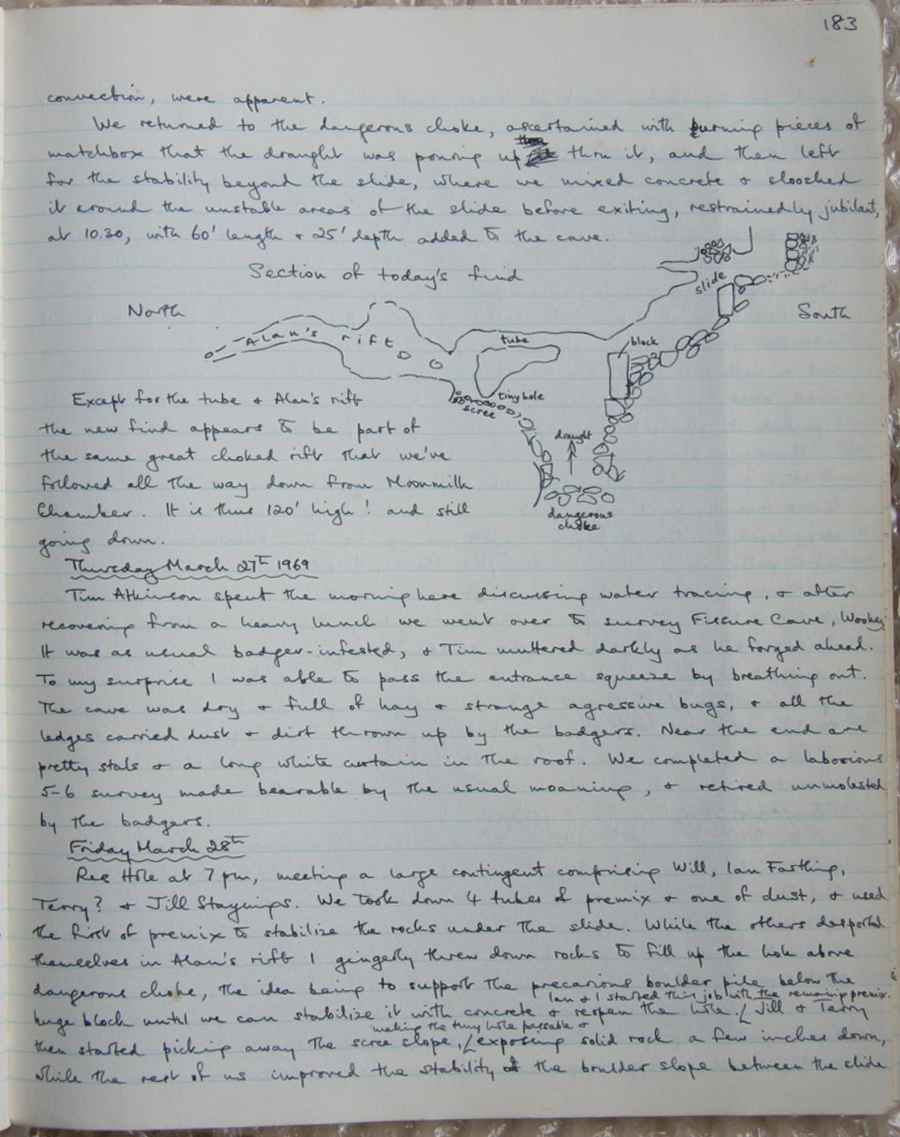 183
convection, were apparent.
We returned to the dangerous choke, ascertained with burning pieces of
matchbox that the draught was pouring up thru it, and then left
for the stability beyond the slide, where we mixed concrete & slooshed
it around the unstable areas of the slide before exiting, restrainedly jubilant,
at 10.30, with 60' length & 25' depth added to the cave.
Section of today's find
North
South
slide
Alan's rift
tube
block
tiny hole
scree
draught
dangerous
choke
Except for the tube & Alan's rift
the new find appears to be part of
the same great choked rift that we've
followed all the way down from Moonmilk
Chamber. It is thus 120' high! and still
going down.
Thursday March 27th 1969
Tim Atkinson spent the morning here discussing water tracing, & after
recovering from a heavy lunch we went over to survey Fissure Cave, Wookey
It was as usual badger-infested, & Tim muttered darkly as he forged ahead.
To my surprise I was able to pass the entrance squeeze by breathing out.
The cave was dry & full of hay & strange agressive bugs, & all the
ledges carried dust & dirt thrown up by the badgers. Near the end are
pretty stals & a long white curtain in the roof. We completed a laborious
5-6 survey made bearable by the usual moaning, & retired unmolested
by the badgers.
Friday March 28th
Hole at 7 pm, meeting a large contingent comprising Will, Ian Farthing,
Terry? & Jill Staynings. We took down 4 tubes of premix & one of dust, & used
the first of premix to stabilize the rocks under the slide. While the others desported
themselves in Alan's rift I gingerly threw down rocks to fill up the hole above
dangerous choke, the idea being to support the precarious boulder pile below the
Ian & I started this job with the remaining premix.
huge block until we can stabilize it with concrete & reopen the hole. Jill & Terry
making the tiny hole passable &
then started picking away the scree slope, exposing solid rock a few inches down,
while the rest of us improved the stability of the boulder slope between the slide